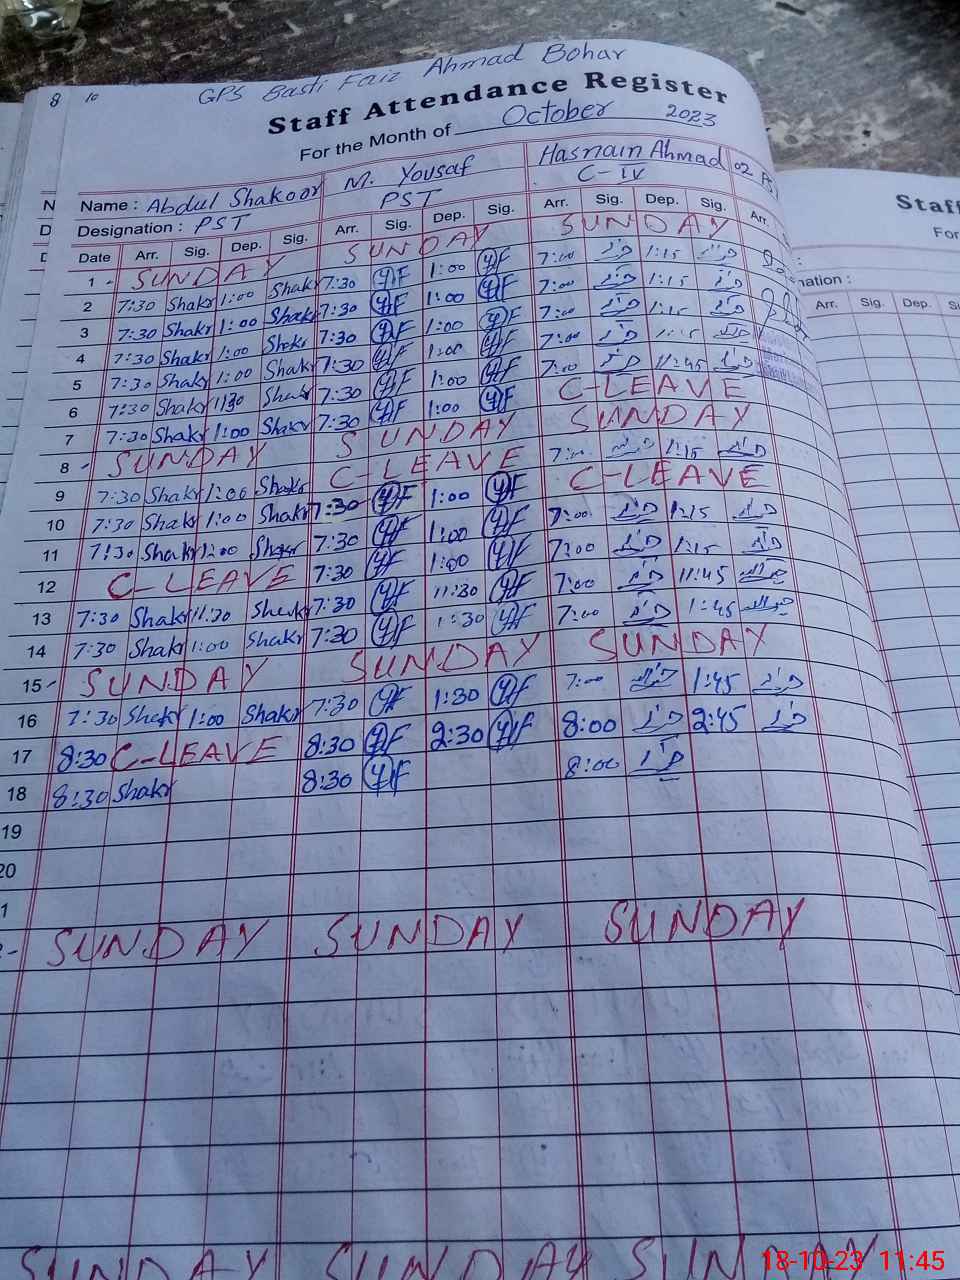 8 10 GPS Basti Faiz Ahmad Bohar
Staff Attendance Register
For the Month of October 2023
Name : Abdul Shakoor M. Yousaf Hasnain Ahmad 02
Designation : PST PST C-IV
Date Arr. Sig. Dep. Sig. Arr. Sig. Dep. Sig. Arr. Sig. Dep. Sig. Arr.
1 - SUNDAY SUNDAY SUNDAY
2 7:30 Shakr 1:00 Shakr 7:30 YF 1:00 YF 7:00 1:15
3 7:30 Shakr 1:00 Shakr 7:30 YF 1:00 YF 7:00 1:15
4 7:30 Shakr 1:00 Shakr 7:30 YF 1:00 YF 7:00 1:15
5 7:30 Shakr 1:00 Shakr 7:30 YF 1:00 YF 7:00 1:15
6 7:30 Shakr 1130 Shakr 7:30 YF 1:00 YF 7:00 11:45
7 7:30 Shakr 1:00 Shakr 7:30 YF 1:00 YF C-LEAVE
8 - SUNDAY SUNDAY SUNDAY
9 7:30 Shakr 1:00 Shakr C-LEAVE 7:00 1:15
10 7:30 Shakr 1:00 Shakr 7:30 YF 1:00 YF C-LEAVE
11 7:30 Shakr 1:00 Shakr 7:30 YF 1:00 YF 7:00 1:15
12 C-LEAVE 7:30 YF 1:00 YF 7:00 1:15
13 7:30 Shakr 11:30 Shakr 7:30 YF 11:30 YF 7:00 11:45
14 7:30 Shakr 1:00 Shakr 7:30 YF 1:30 YF 7:00 1:45
15 - SUNDAY SUNDAY SUNDAY
16 7:30 Shakr 1:00 Shakr 7:30 YF 1:30 YF 7:00 1:45
17 8:30 C-LEAVE 8:30 YF 2:30 YF 8:00 2:45
18 8:30 Shakr 8:30 YF 8:00
19
20
1
- SUNDAY SUNDAY SUNDAY
SUNDAY SUNDAY SUNDAY
Staff
For
nation :
Arr. Sig. Dep. S
18-10-23 11:45